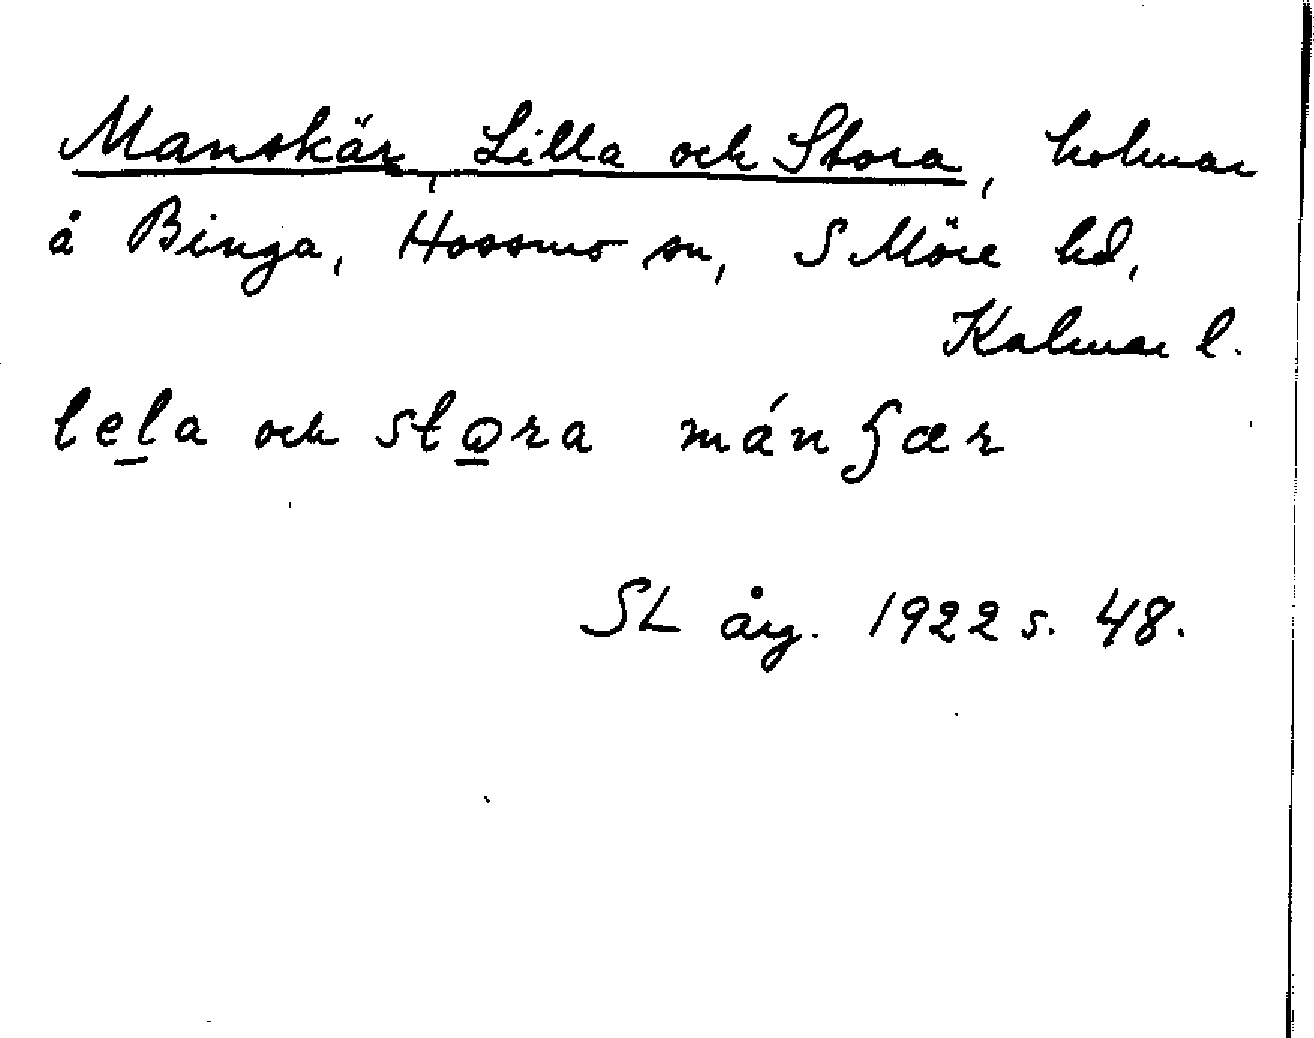 Manskär, Lilla och Stora, holmar
å Binga, Hossmo sn, S Möre hd,
Kalmar l.
lela och stora mánʃær
SL årg. 1922 s. 48.